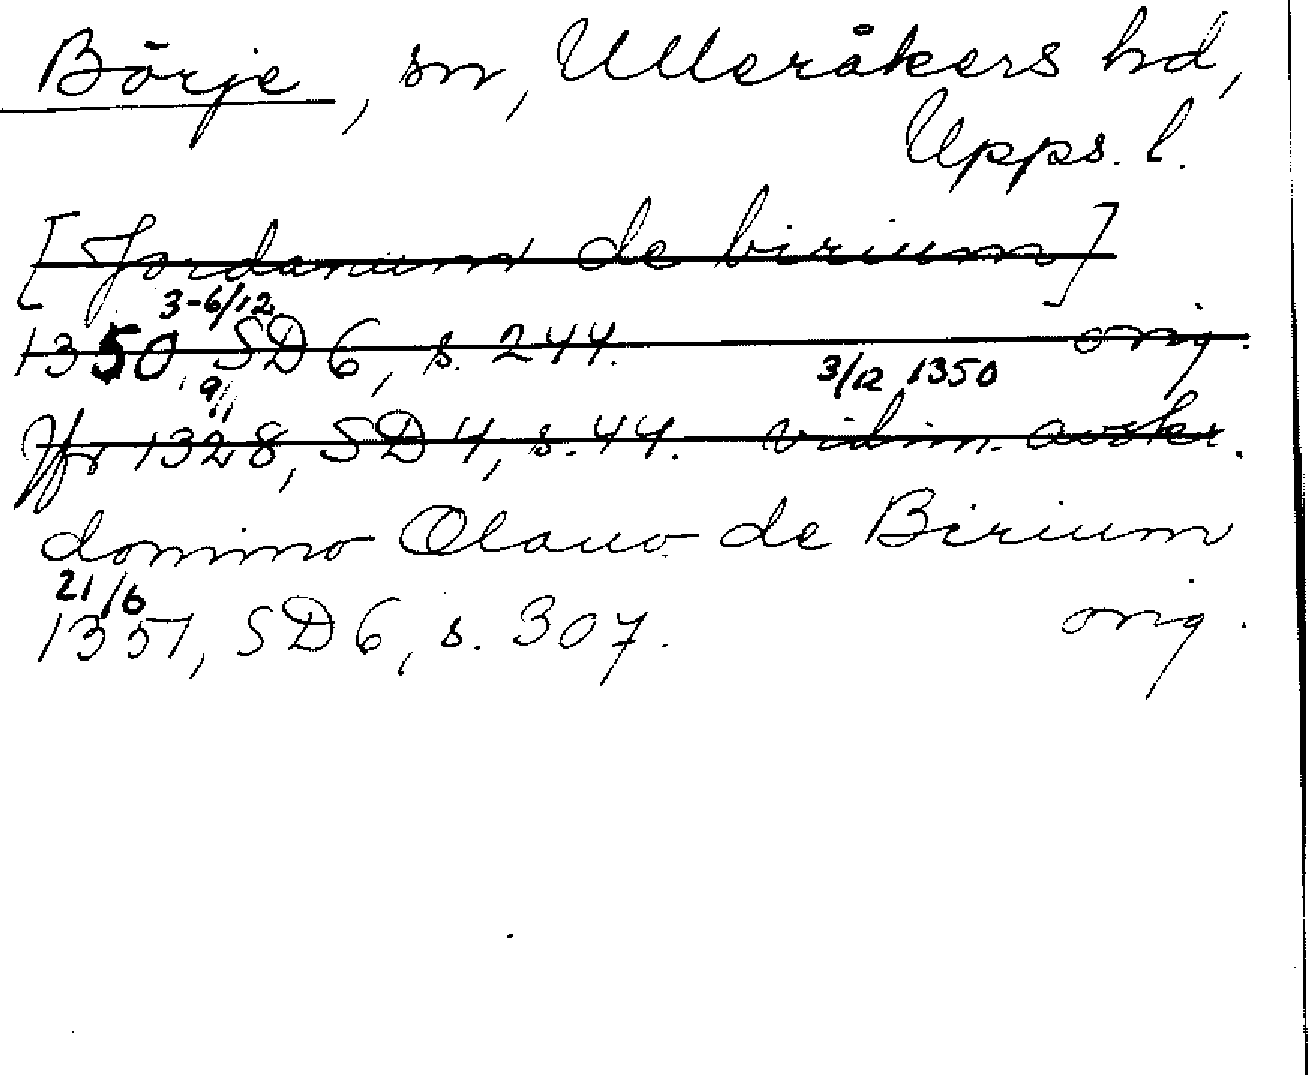 Börje, sn, Ulleråkers hd,
Upps. l.
[Jordanum de birium]
3-6/12
1350, SD 6, s. 244. orig.
9/11 3/12 1350
Jfr 1328, SD 4, s. 44. vidim. avskr.
domino Olauo de Birium
21/6
1351, SD 6, s. 307. orig.